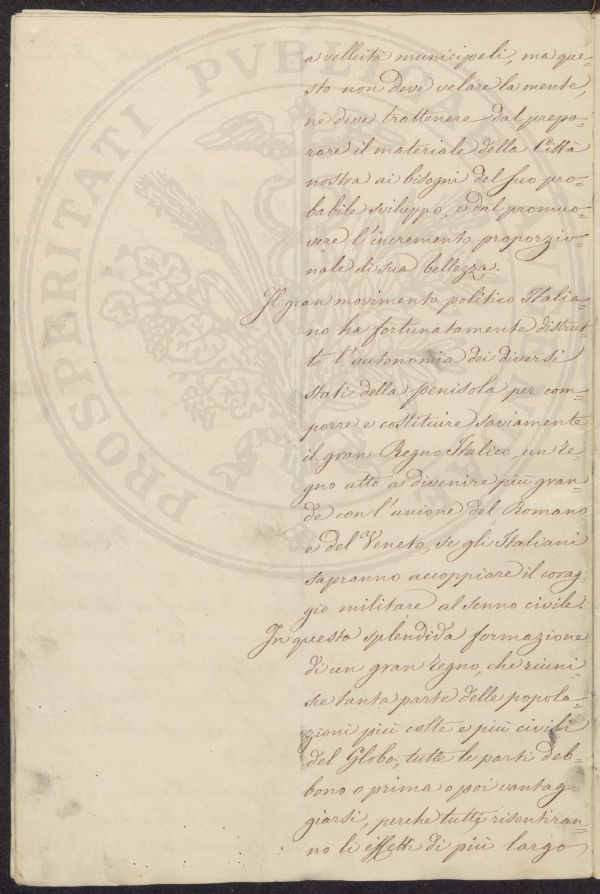 a velleità municipali, ma que=
sto non deve velare la mente,
nè deve trattenere dal prepa=
rare il materiale della Città
nostra ai bisogni del suo pro=
babile sviluppo, e dal promuo=
vere l'incremento proporzio=
nale di sua bellezza.
Il gran movimento politico Italia=
no ha fortunatamente distrut=
to l'autonomia dei diversi
stati della penisola per com=
porre e costituire saviamente
il gran Regno Italico, un re=
gno atto a divenire più gran=
de con l'unione del Romano
e del Veneto, se gli Italiani
sapranno accoppiare il corag=
gio militare al senno civile.
In questa splendida formazione
di un gran regno, che riuni=
sce tanta parte delle popola=
zioni più colte e più civili
del Globo, tutte le parti deb=
bono o prima o poi vantag=
giarsi, perche tutte risentiran=
no li effetti di più largo
PROSPERITATI PVBLICAE